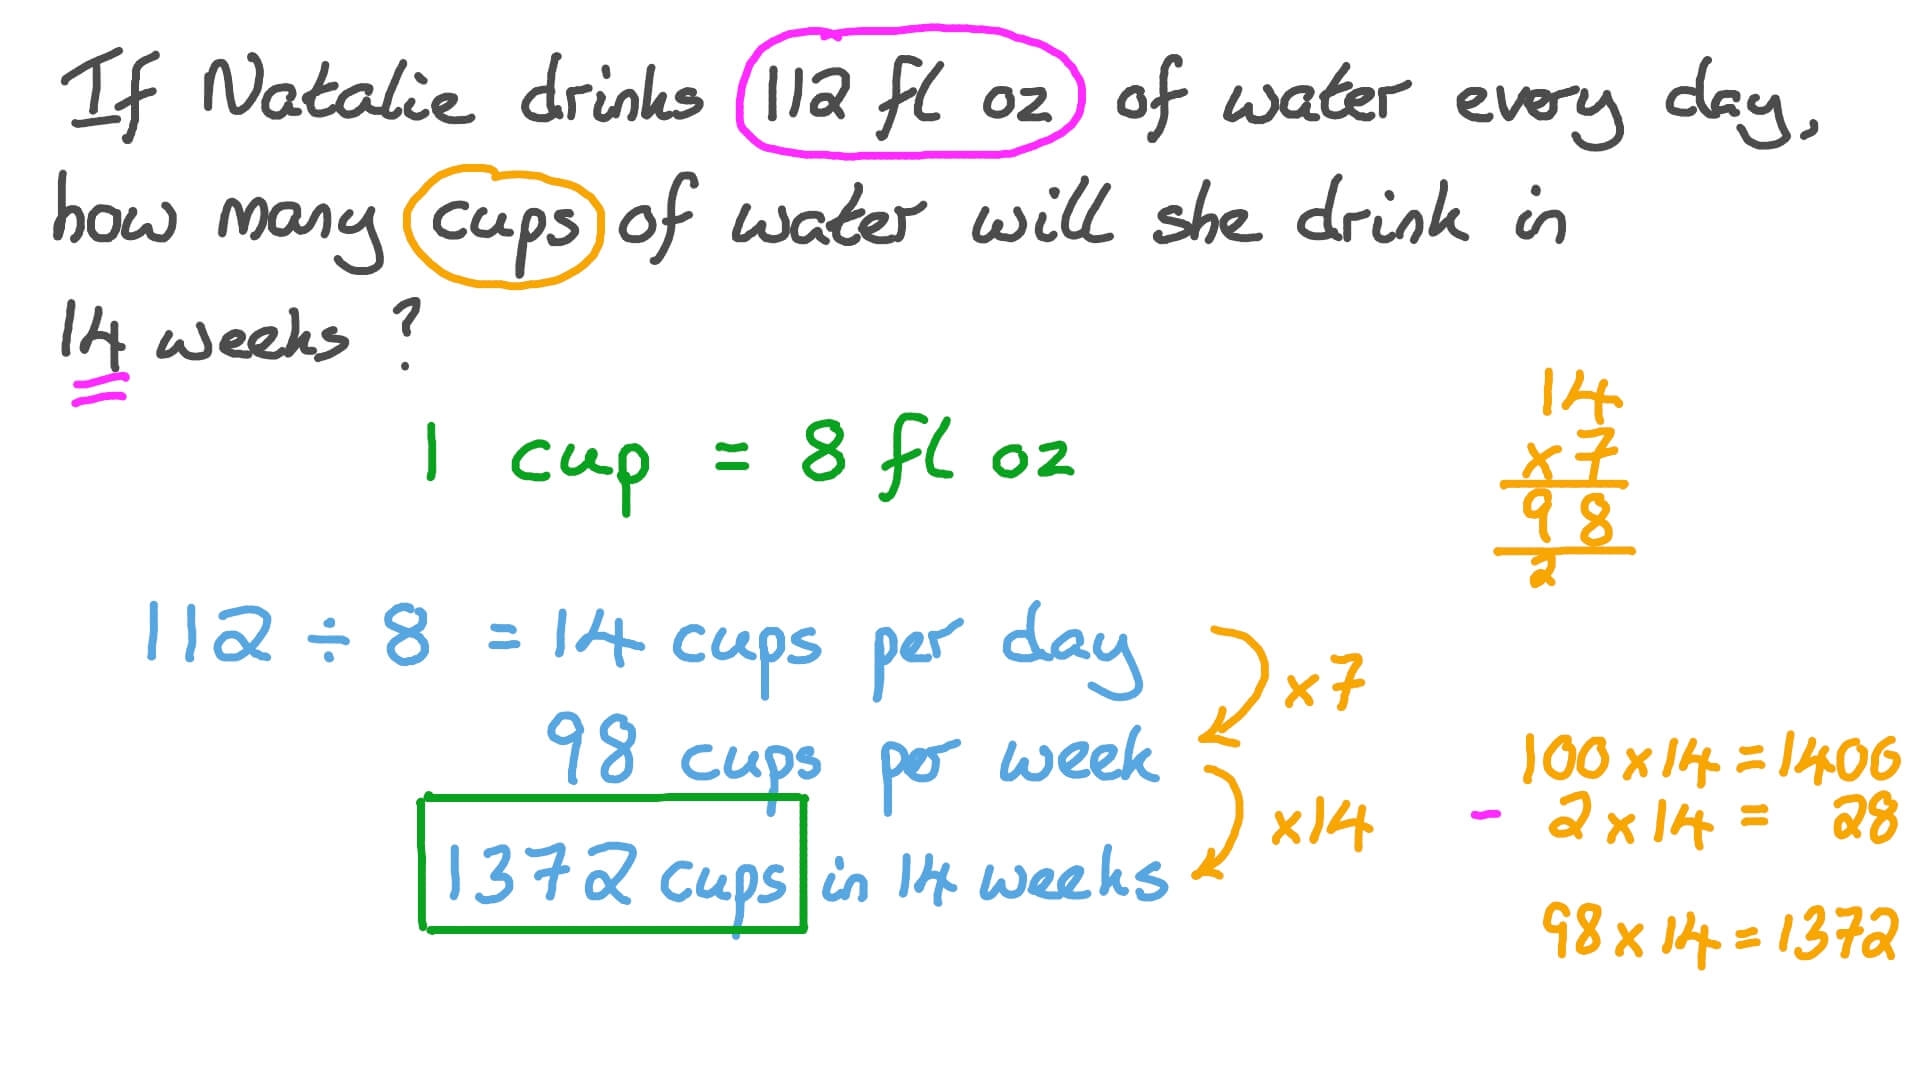 If Natalie drinks 112 fl oz of water every day,
how many cups of water will she drink in
14 weeks ?
1 cup = 8 fl oz
14
x 7
98
2
112 ÷ 8 = 14 cups per day
x7
98 cups per week
x14
1372 cups in 14 weeks
100 x 14 = 1400
- 2 x 14 = 28
98 x 14 = 1372